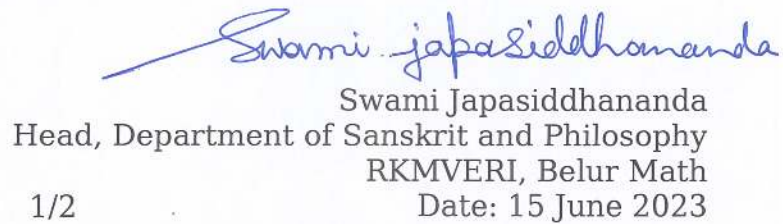 Swami japasiddhananda
Swami Japasiddhananda
Head, Department of Sanskrit and Philosophy
RKMVERI, Belur Math
1/2 Date: 15 June 2023